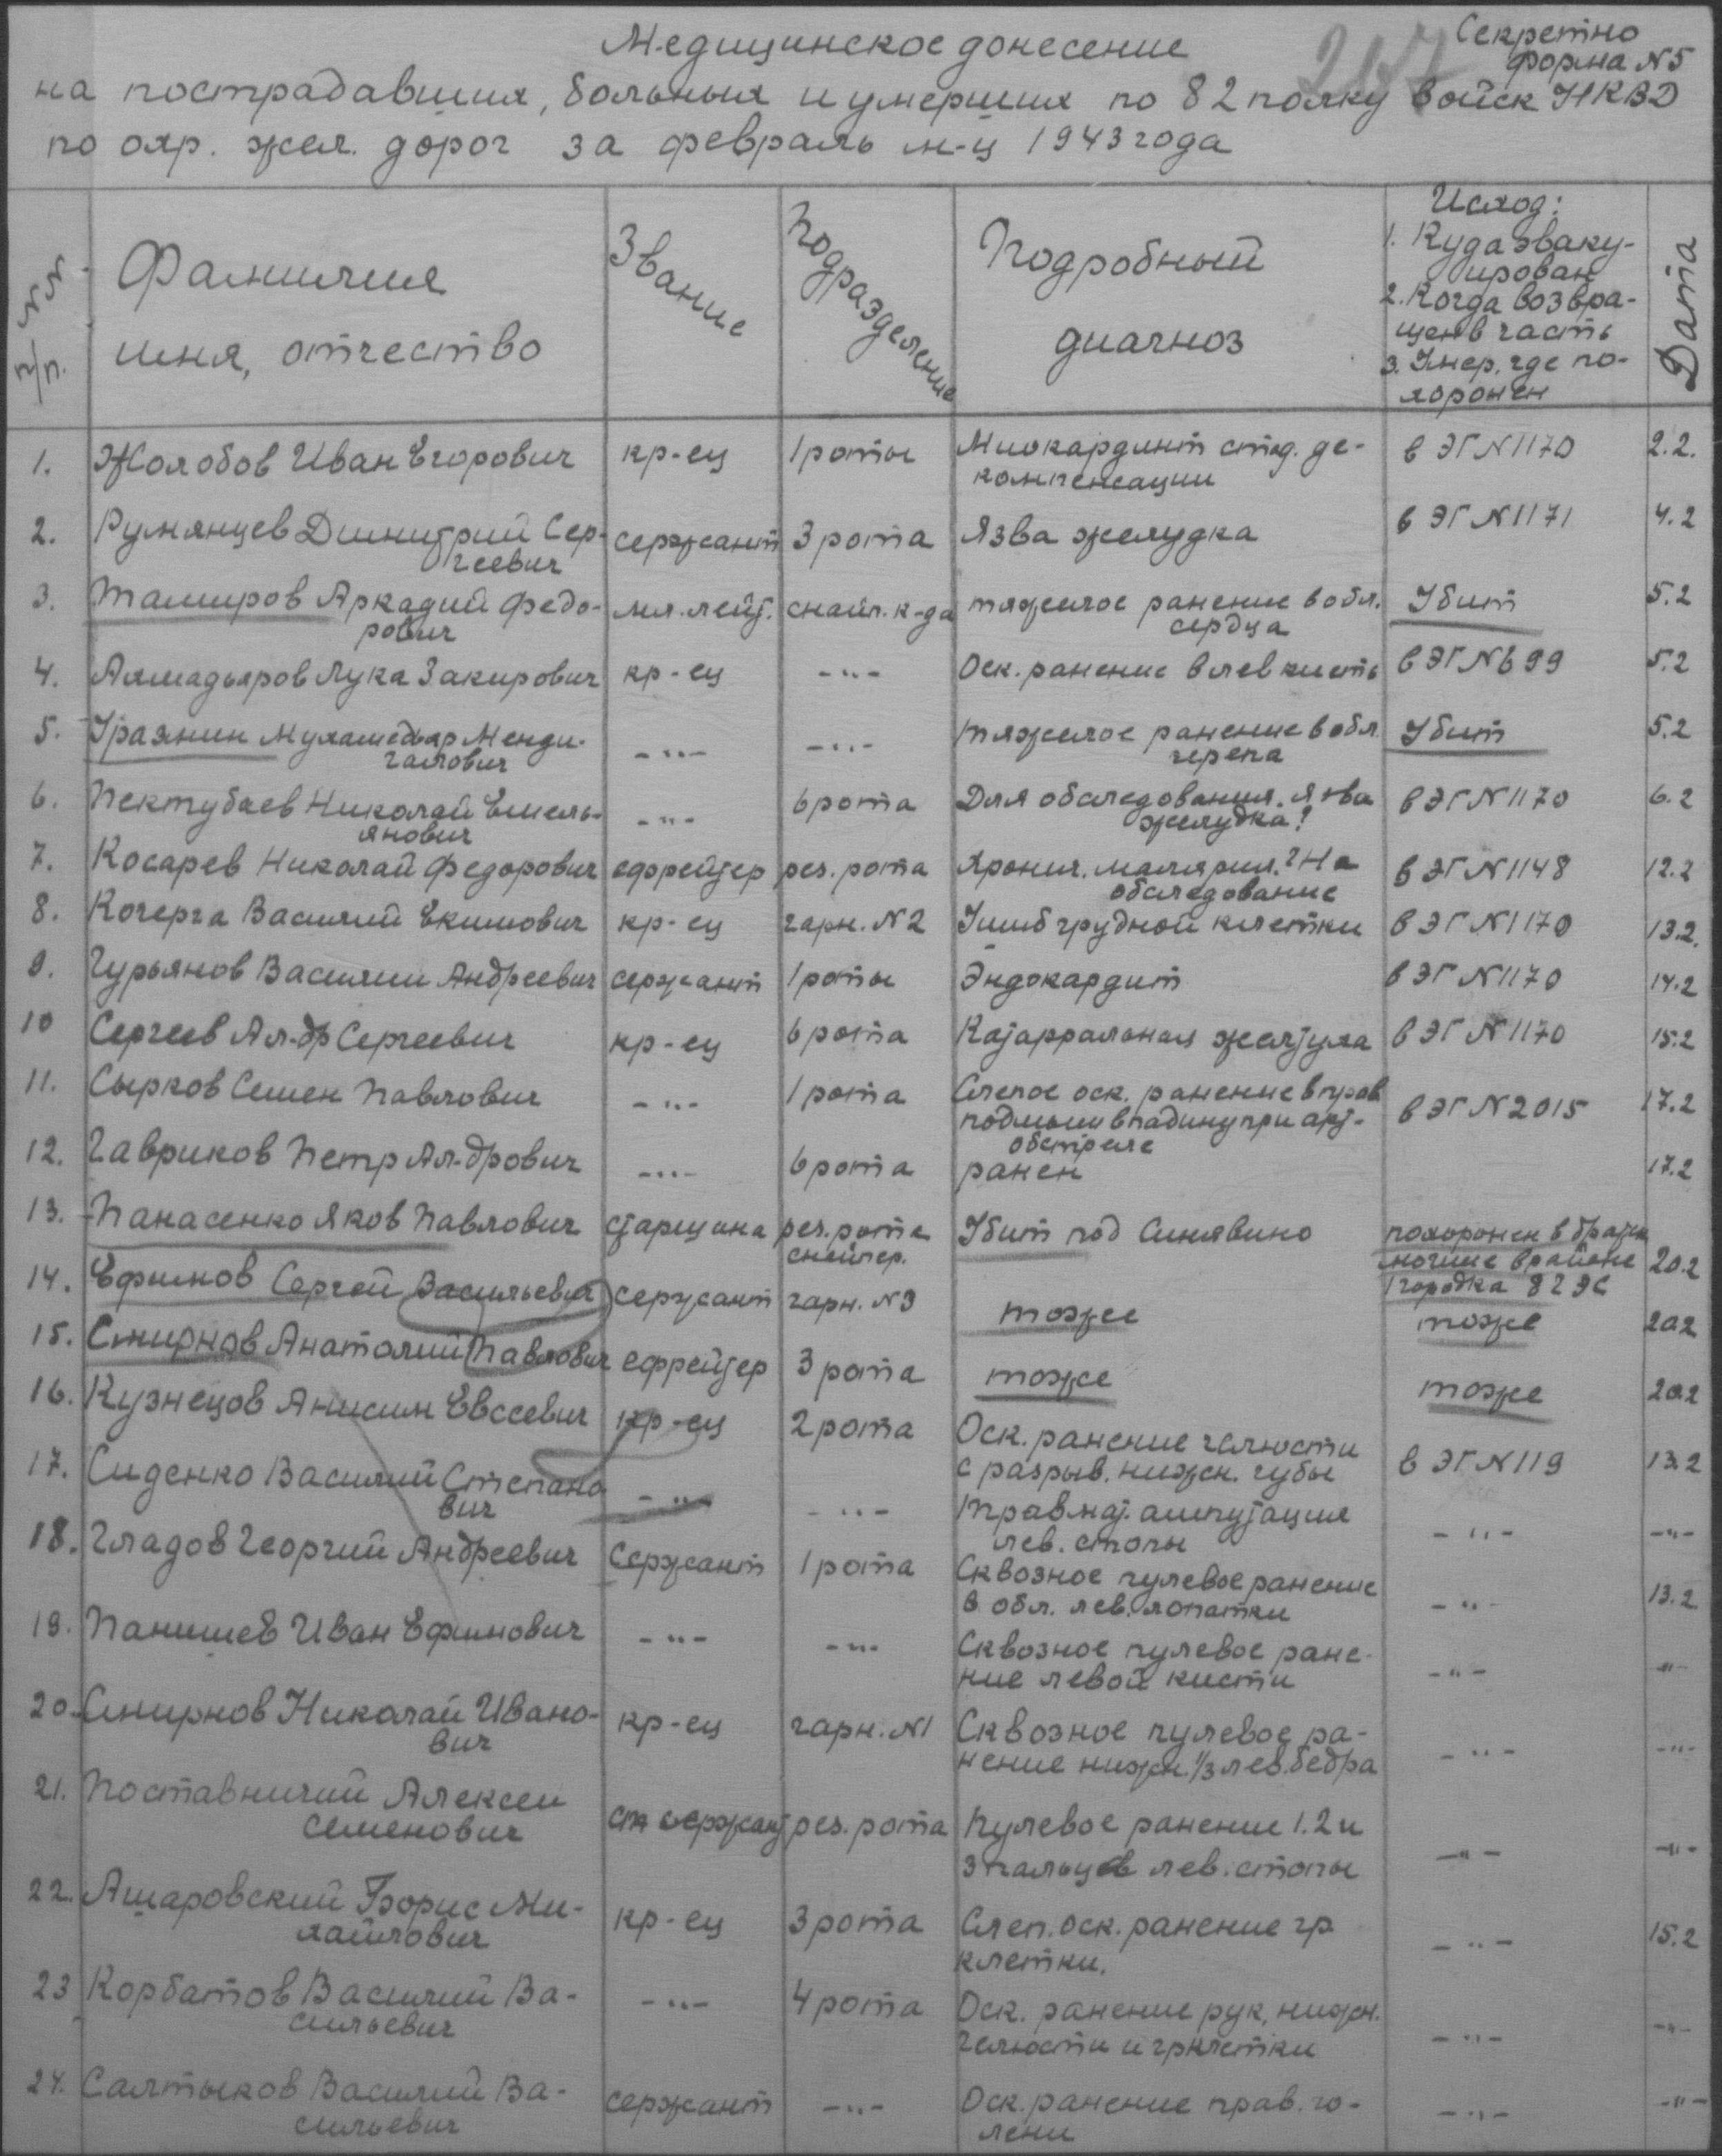 Секретно
форма N5
Медицинское донесение
на пострадавших, больных и умерших по 82 полку войск НКВД
по охр. жел. дорог за февраль м-ц 1943 года
NN п/п.
Фамилия
имя, отчество
Звание
Подразделение
Подробный
диагноз
Исход:
1. Куда эваку-
ирован
2. Когда возвра-
щен в часть
3. Умер, где по-
хоронен
Дата
1. Жолобов Иван Егорович кр-ец 1 роты Миокардиит стад. де- в ЭГ N1170 2.2.
компенсации
2. Румянцев Димитрий Сер- сержант 3 рота Язва желудка в ЭГ N1171 4.2
геевич
3. Тамиров Аркадий Федо- мл. лейт. снайп. к-да тяжелое ранение в обл. Убит 5.2
рович сердца
4. Ахмадьяров Лука Закирович кр-ец -"- Оск. ранение в лев кисть в ЭГ N 699 5.2
5. Уразнин Мухамедьяр Менди- -"- -"- тяжелое ранение в обл Убит 5.2
галович черепа
6. Пектубаев Николай Емель- -"- 6 рота Для обследования. Язва в ЭГ N1170 6.2
янович желудка?
7. Косарев Николай Федорович ефрейтер рез. рота Хронич. малярия.? На в ЭГ N1148 12.2
обследование
8. Кочерга Василий Екимович кр-ец гарн. N2 Ушиб грудной клетки в ЭГ N1170 13.2.
9. Гурьянов Василий Андреевич сержант 1 роты Эндокардит в ЭГ N1170 14.2
10 Сергеев Ал-др Сергеевич кр-ец 6 рота Катарральная желтуха в ЭГ N1170 15.2
11. Сырков Семен Павлович -"- 1 рота Слепое оск. ранение в прав в ЭГ N2015 17.2
подмыш впадину при арт-
обстреле
12. Гавриков Петр Ал-дрович -"- 6 рота ранен 17.2
13. Панасенко Яков Павлович старшина рез. рота Убит под Синявино похоронен в братск 20.2
снайпер. могиле в районе
городка 8 ГЭС
14. Ефимов Сергей Васильевич сержант гарн. N3 тоже тоже 20.2
15. Смирнов Анатолий Павлович ефрейтер 3 рота тоже тоже 20.2
16. Кузнецов Анисим Евсеевич кр-ец 2 рота Оск. ранение челюсти в ЭГ N119 13.2
с разрыв. нижн. губы
17. Сиденко Василий Степано -"- -"- Травмат. ампутация -"- -"-
вич лев. стопы
18. Гладов Георгий Андреевич Сержант 1 рота Сквозное пулевое ранение -"- 13.2
в обл. лев. лопатки
19. Панишев Иван Ефимович -"- -"- Сквозное пулевое ране- -"- -"-
ние левой кисти
20. Смирнов Николай Ивано- кр-ец гарн. N1 Сквозное пулевое ра- -"- -"-
вич нение нижн. 1/3 лев. бедра
21. Поставничий Алексей ст сержант рез. рота Пулевое ранение 1.2 и -"- -"-
Семенович 3 пальцев лев. стопы
22. Ашаровский Борис Ми- кр-ец 3 рота Слеп. оск. ранение гр -"- 15.2
хайлович клетки.
23 Корбатов Василий Ва- -"- 4 рота Оск. ранение рук, нижн. -"- -"-
сильевич челюсти и гр клетки
24. Салтыков Василий Ва- сержант -"- Оск. ранение прав. го- -"- -"-
сильевич лени